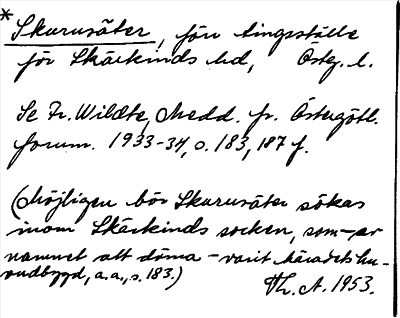 *Skurusäter, förr tingsställe
för Skärkinds hd, Östg. l.
Se Fr. Wildte, Medd. fr. Östergötl.
forum. 1933-34, s. 183, 187 f.
(Möjligen bör Skurusäter sökas
inom Skärkinds socken, som - av
namnet att döma - varit häradets hu-
vudbygd, a.a., s. 183.)
Th. A. 1953.